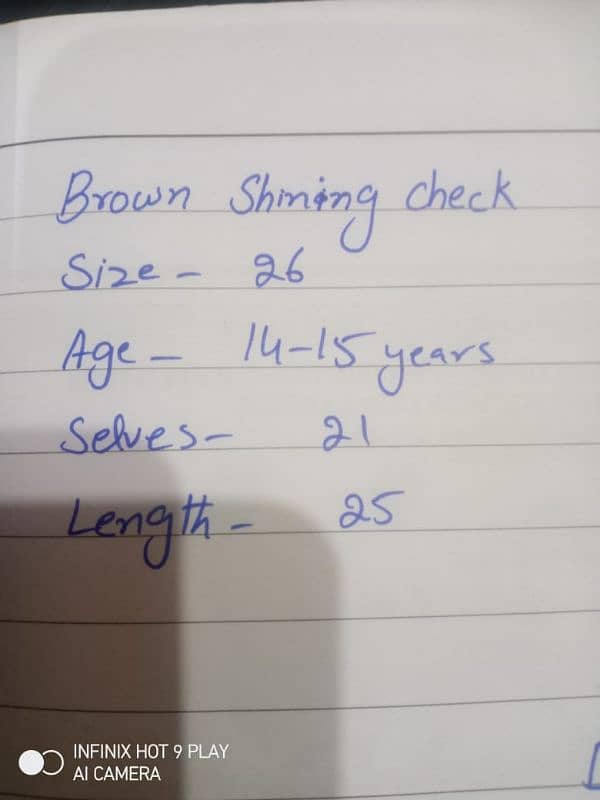 Brown Shining check
Size - 26
Age - 14-15 years
Selves - 21
Length - 25
INFINIX HOT 9 PLAY
AI CAMERA